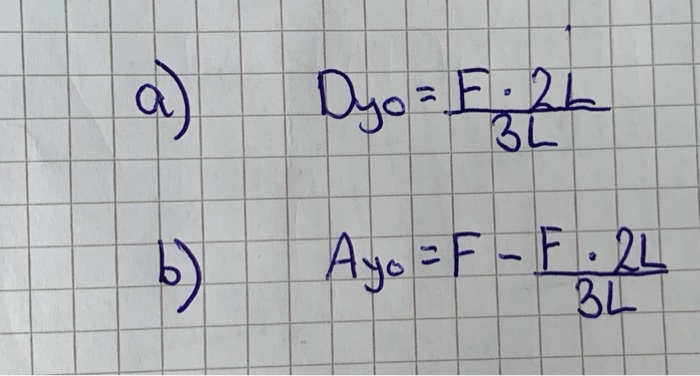 a) Dyo = F · 2L / 3L
b) Ayo = F - F · 2L / 3L